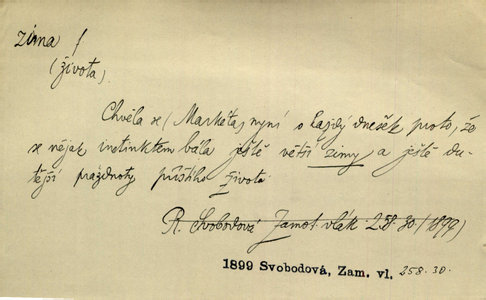 zima f
(života).
Chvěla se (Markéta) nyní o každý dnešek proto, že
se nějak instinktem bála ještě větší zimy a ještě du-
tější prázdnoty příštího života
R. Svobodová Zamot. vlák. 258.30. (1899)
1899 Svobodová, Zam. vl. 258.30.